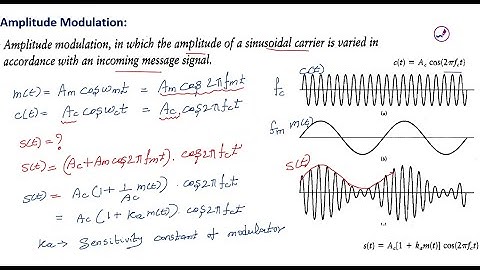 Amplitude Modulation:
Amplitude modulation, in which the amplitude of a sinusoidal carrier is varied in
accordance with an incoming message signal.
m(t) = Am cos ωmt = Am cos 2πfmt
c(t) = Ac cos ωct = Ac cos 2πfct
s(t) = ?
s(t) = (Ac + Am cos 2πfmt) . cos 2πfct
s(t) = Ac (1 + 1/Ac m(t)) . cos 2πfct
= Ac (1 + ka m(t)) . cos 2πfct
ka → Sensitivity constant of modulator
c(t) = Ac cos(2πfct)
c(t)
fc
(a)
fm m(t)
(b)
s(t)
(c)
s(t) = Ac[1 + kam(t)] cos(2πfct)